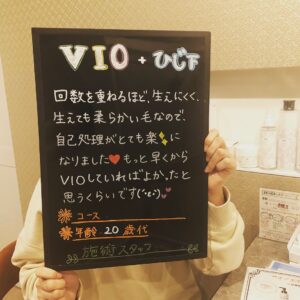 VIO + ひじ下
回数を重ねるほど、生えにくく、
生えても柔らかい毛なので、
自己処理がとても楽✨に
なりました❤もっと早くから
VIOしていればよかったと
思うくらいです
コース
年齢 20 歳代
施術スタッフ